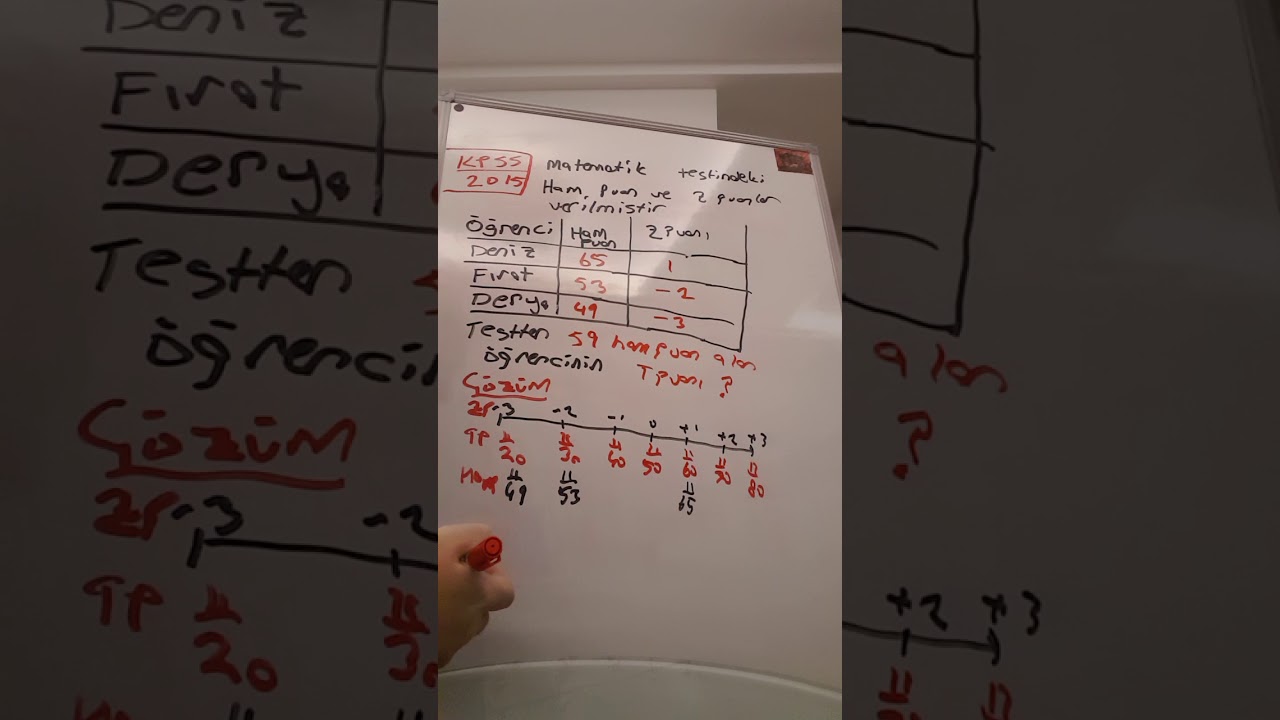 KPSS
2015
Matematik testindeki
Ham puan ve Z puanları
verilmiştir
Öğrenci Ham Puan Z Puanı
Deniz 65 1
Fırat 53 -2
Derya 49 -3
Testten 59 ham puan alan
Öğrencinin T puanı ?
Çözüm
ZP -3 -2 -1 0 +1 +2 +3
TP 20 30 40 50 60 70 80
Ham 49 53 65